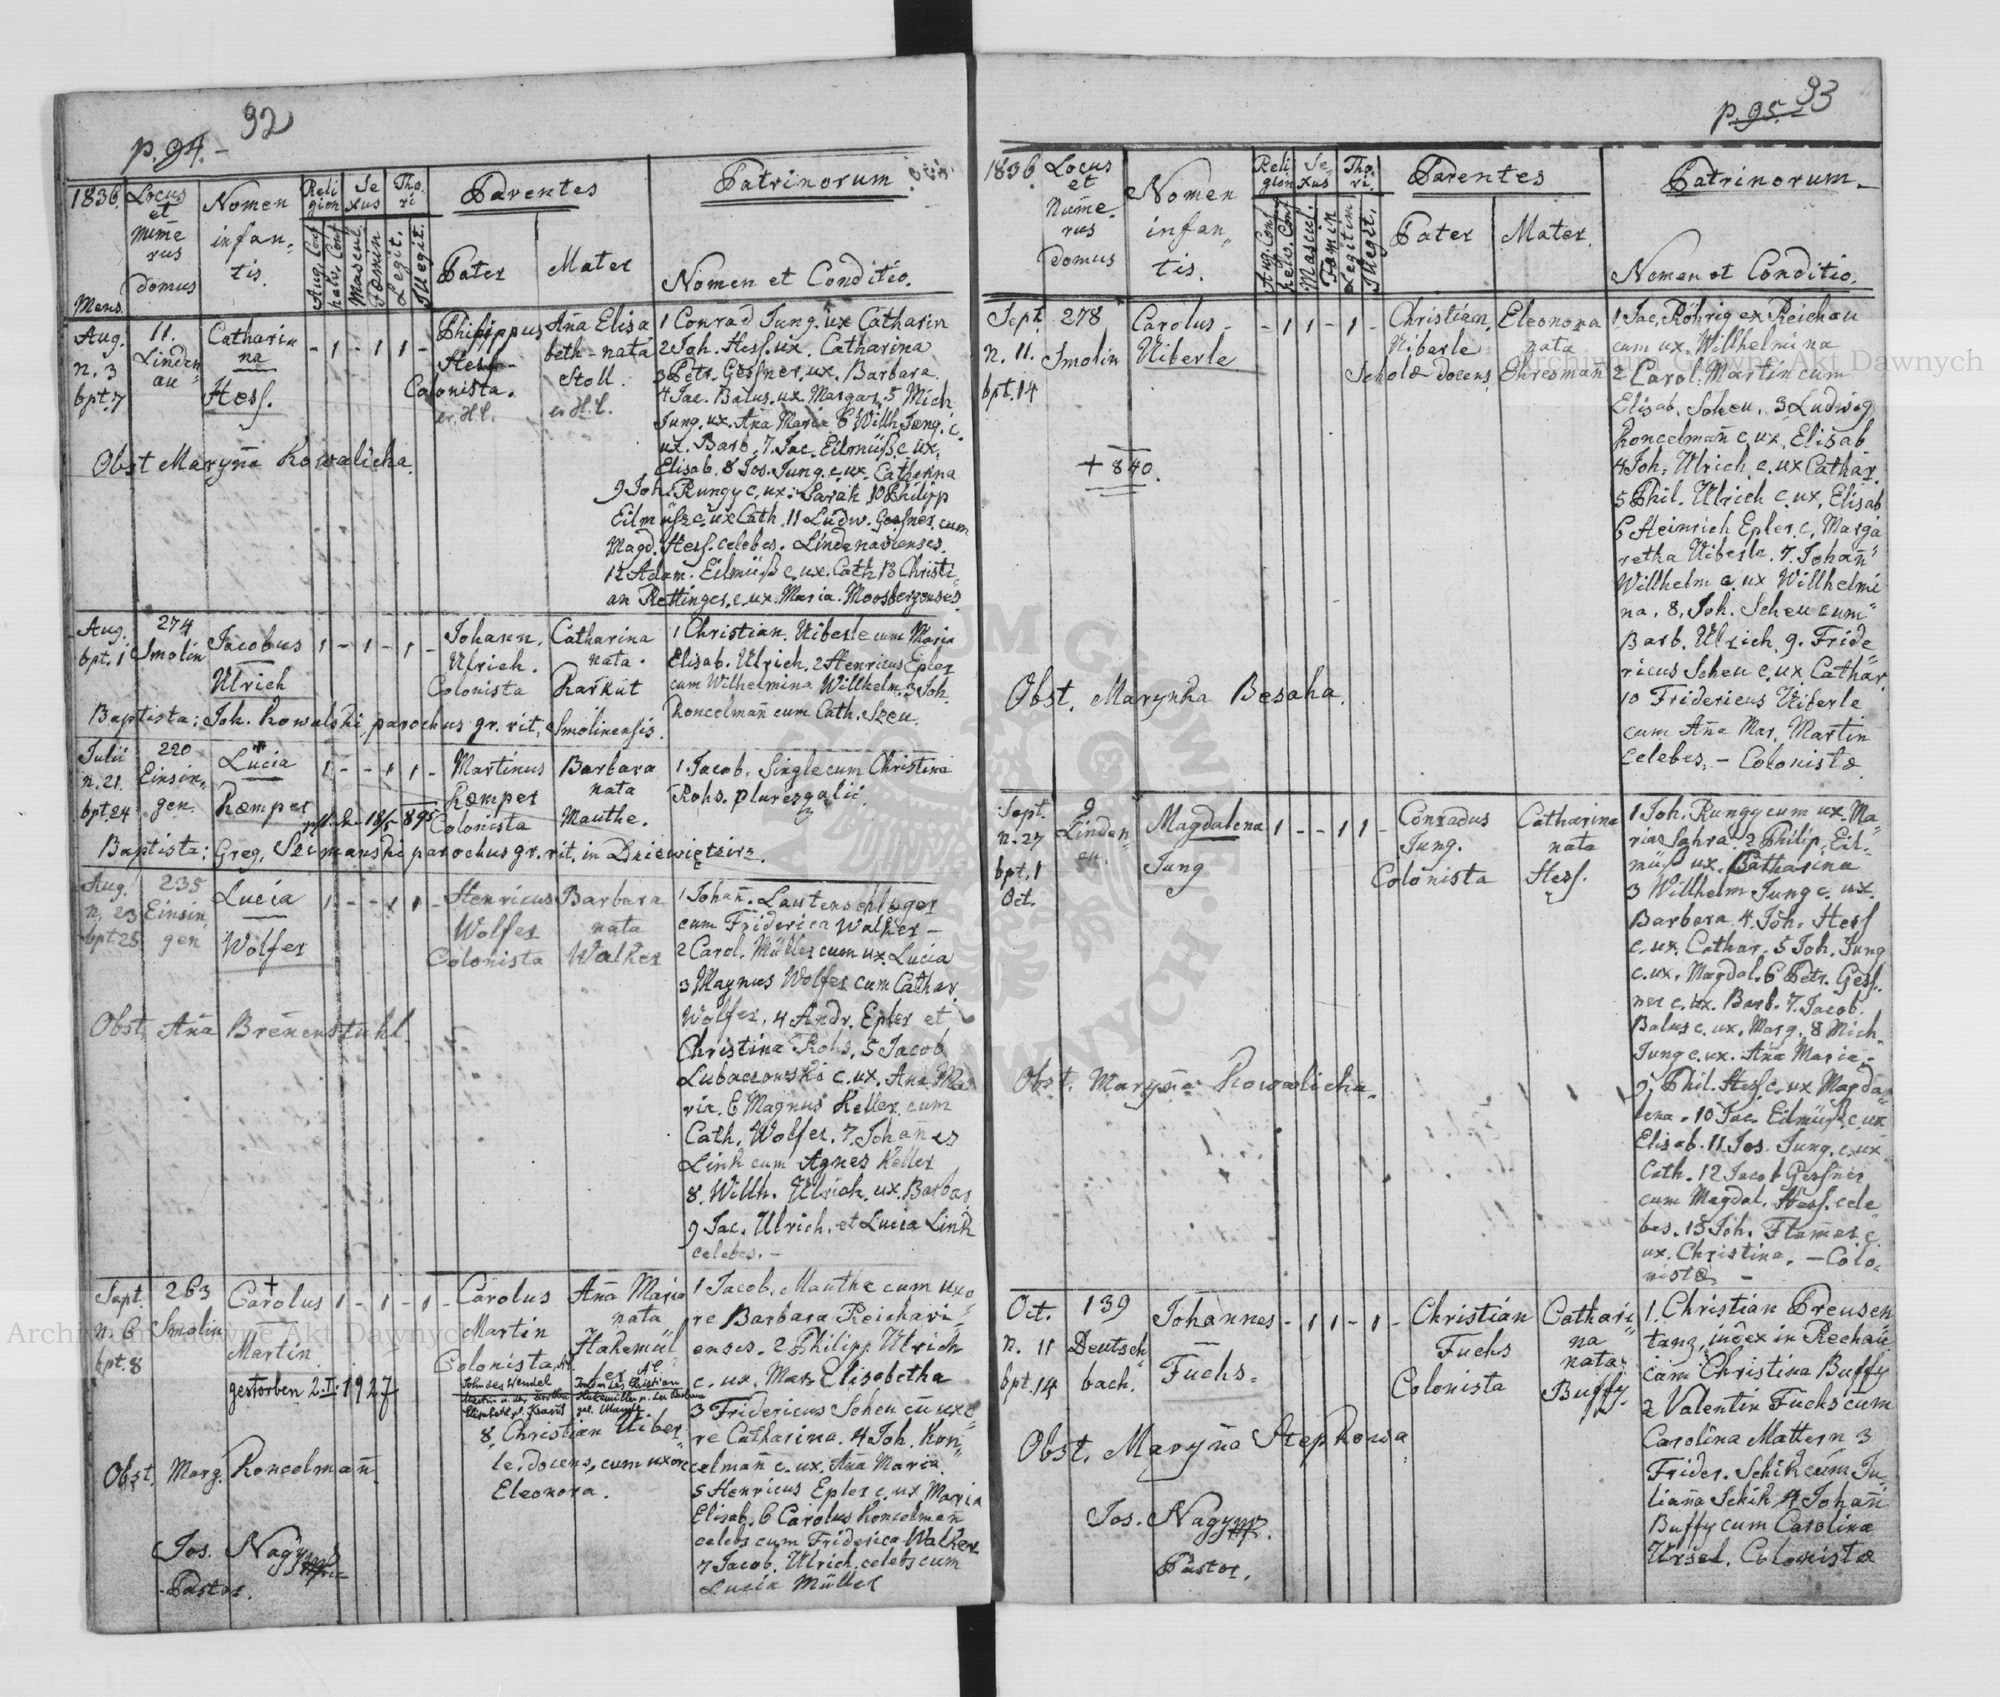 92
p. 94. -
1836. Locus et Nume rus domus Nomen infan- tis. Reli gion Se xus Tho. ri Parentes Patrinorum
Mens. Aug. Conf helv. Conf Mascul. Fæmin Legit. Illegit. Pater Mater Nomen et Conditio.
Aug. n. 3 bpt. 7
11. Linden au
Catharin na Hess.
- 1 - 1 1 -
Philippus Hess Colonista. ev. H. C.
Aña Elisa beth - nata Stoll. ev H. C.
1 Conrad Jung. ux Catharin
2 Joh. Hess. ux. Catharina
3 Petr. Gessner. ux. Barbara
4 Jac. Balus. ux. Margar. 5 Mich
Jung. ux. Aña Maria 6 Willh. Jung. c.
ux. Barb. 7. Jac. Eilmüß. c. ux.
Elisab. 8 Jos. Jung. c. ux. Catharina
9 Joh. Rungy c. ux. Sarah 10 Philipp
Eilmüsz c. ux Cath. 11 Ludw. Gessner cum
Magd. Hess. celebes. Lindenavienses.
12 Adam. Eilmüß c. ux. Cath 13 Christi-
an Rettinger. c. ux. Maria. Moosbergenses
Obst Maryña Kowalicha.
Aug. bpt. 1
274 Smolin
Jacobus Ulrich
1 - 1 - 1 -
Johann. Ulrich. Colonista
Catharina nata. Karkut
1 Christian. Uiberle cum Maria
Elisab. Ulrich. 2 Henricus Epler
cum Wilhelmina Willhelm. 3 Joh.
Koncelmañ cum Cath. Szeu.
Baptista: Joh. Kowalski, parochus gr. rit. Smolinensis.
Julii n. 21. bpt. 24
220 Einsin- gen.
Lucia Kæmper
1 - - 1 1 -
Martinus Kæmper Colonista
Barbara nata Mauthe.
1. Jacob. Single cum Christina
Rohs. plures galii.
Baptista: Greg. Szimanski parochus gr. rit. in Dziewięcierz.
Aug. n. 23 bpt. 25
235 Einsin gen
Lucia Wolfer
1 - - 1 1 -
Henricus Wolfer Colonista
Barbara nata Walker
1 Johañ. Lautenschleger
cum Friderica Walker -
2 Carol. Müller cum ux. Lucia
3 Magnus Wolfer cum Cathar.
Wolfer. 4 Andr. Epler et
Christina Rohs. 5 Jacob
Lubaczowski c. ux. Ana Ma
ria. 6 Magnus Keller. cum
Cath. Wolfer. 7. Johañes
Link cum Agnes Keller
8. Willh. Ulrich. ux. Barbar.
9 Jac. Ulrich. et Lucia Link
celebes. -
Obst. Aña Breñenstuhl.
Sept. n. 6 bpt. 8
263 Smolin
Carolus Martin.
gestorben 2. I. 1927
1 - 1 - 1 -
Carolus Martin Colonista.
Sohn des Wendel
Aña Maria nata Hakemül ler
1 Jacob. Mauthe cum uxo
re Barbara Reichavi-
enses. 2 Philipp Ulrich
c. ux. Mar. Elisabetha
3 Fridericus Scheu cū uxo
re Catharina. 4 Joh. Kon-
celmañ c. ux. Aña Maria
5 Henricus Epler c. ux Maria
Elisab. 6 Carolus Koncelmañ
celebs cum Friderica Walker
7 Jacob. Ulrich. celebs cum
Lucia Müller
8. Christian Uiber-
le. docens. cum uxore
Eleonora.
Obst. Marg. Koncelmañ.
Jos. Nagy
Pastor.
93
p. 95.
1836. Locus et Nume- rus domus Nomen infan- tis. Reli gion Se- xus Tho. ri. Parentes Patrinorum.
Aug. Conf helv. Conf Mascul. Fæmin Legitim Illegit. Pater Mater. Nomen et Conditio.
Sept. n. 11. bpt. 14
278 Smolin
Carolus Uiberle
- 1 1 - 1 -
Christian. Uiberle Scholæ docens
Eleonora nata Ehresmañ
+ 840.
1. Jac. Röhrig ex Reichau
cum ux. Willhelmina
2 Carol. Martin cum
Elisab. Scheu. 3 Ludwig
Koncelmañ c. ux. Elisab
4 Joh. Ulrich c. ux Cathar.
5 Phil. Ulrich c. ux. Elisab
6 Heinrich Epler c. Marga
retha Uiberle. 7. Johañ
Willhelm c. ux Willhelmi
na. 8. Joh. Scheu cum
Barb. Ulrich. 9. Fride
ricus Scheu c. ux Cathar.
10 Fridericus Uiberle
cum Aña Mar. Martin
Celebes. - Colonistæ.
Obst. Marynka Besaha.
Sept. n. 27 bpt. 1 Oct.
9 Linden- au.
Magdalena Jung
1 - - 1 1 -
Conradus Jung. Colonista
Catharina nata Hess.
1. Joh. Rungy cum ux. Ma-
ria Sahra. 2 Philip. Eil-
müß ux. Catharina
3 Willhelm Jung c. ux.
Barbara. 4. Joh. Hess
c. ux. Cathar. 5 Joh. Jung
c. ux. Magdal. 6 Petr. Gess-
ner c. ux. Barb. 7. Jacob.
Balus c. ux. Marg. 8 Mich.
Jung c. ux. Aña Maria.
9 Phil. Hess c. ux Magda-
lena. 10 Jac. Eilmüß c. ux
Elisab. 11 Jos. Jung. c. ux
Cath. 12 Jacob Gessner
cum Magdal. Hess. cele
bes. 13 Joh. Flamer c.
ux. Christina. - Colo-
nistæ -
Obst. Maryña Kowalicha.
Oct. n. 11 bpt. 14
139 Deutsch- bach.
Johannes Fuchs.
- 1 1 - 1 -
Christian Fuchs Colonista
Cathari- na nata Buffy.
1. Christian Preusen
tanz, judex in Rechau
cum Christina Buffy
2 Valentin Fuchs cum
Carolina Mattern 3
Frider. Schik cum Ju-
liana Schik 4 Johañ
Buffy cum Carolina
Ursel. Colonistæ
Obst. Maryña Stepkowa.
Jos. Nagy
Pastor.
Archiwum Główne Akt Dawnych
Archiwum Główne Akt Dawnych